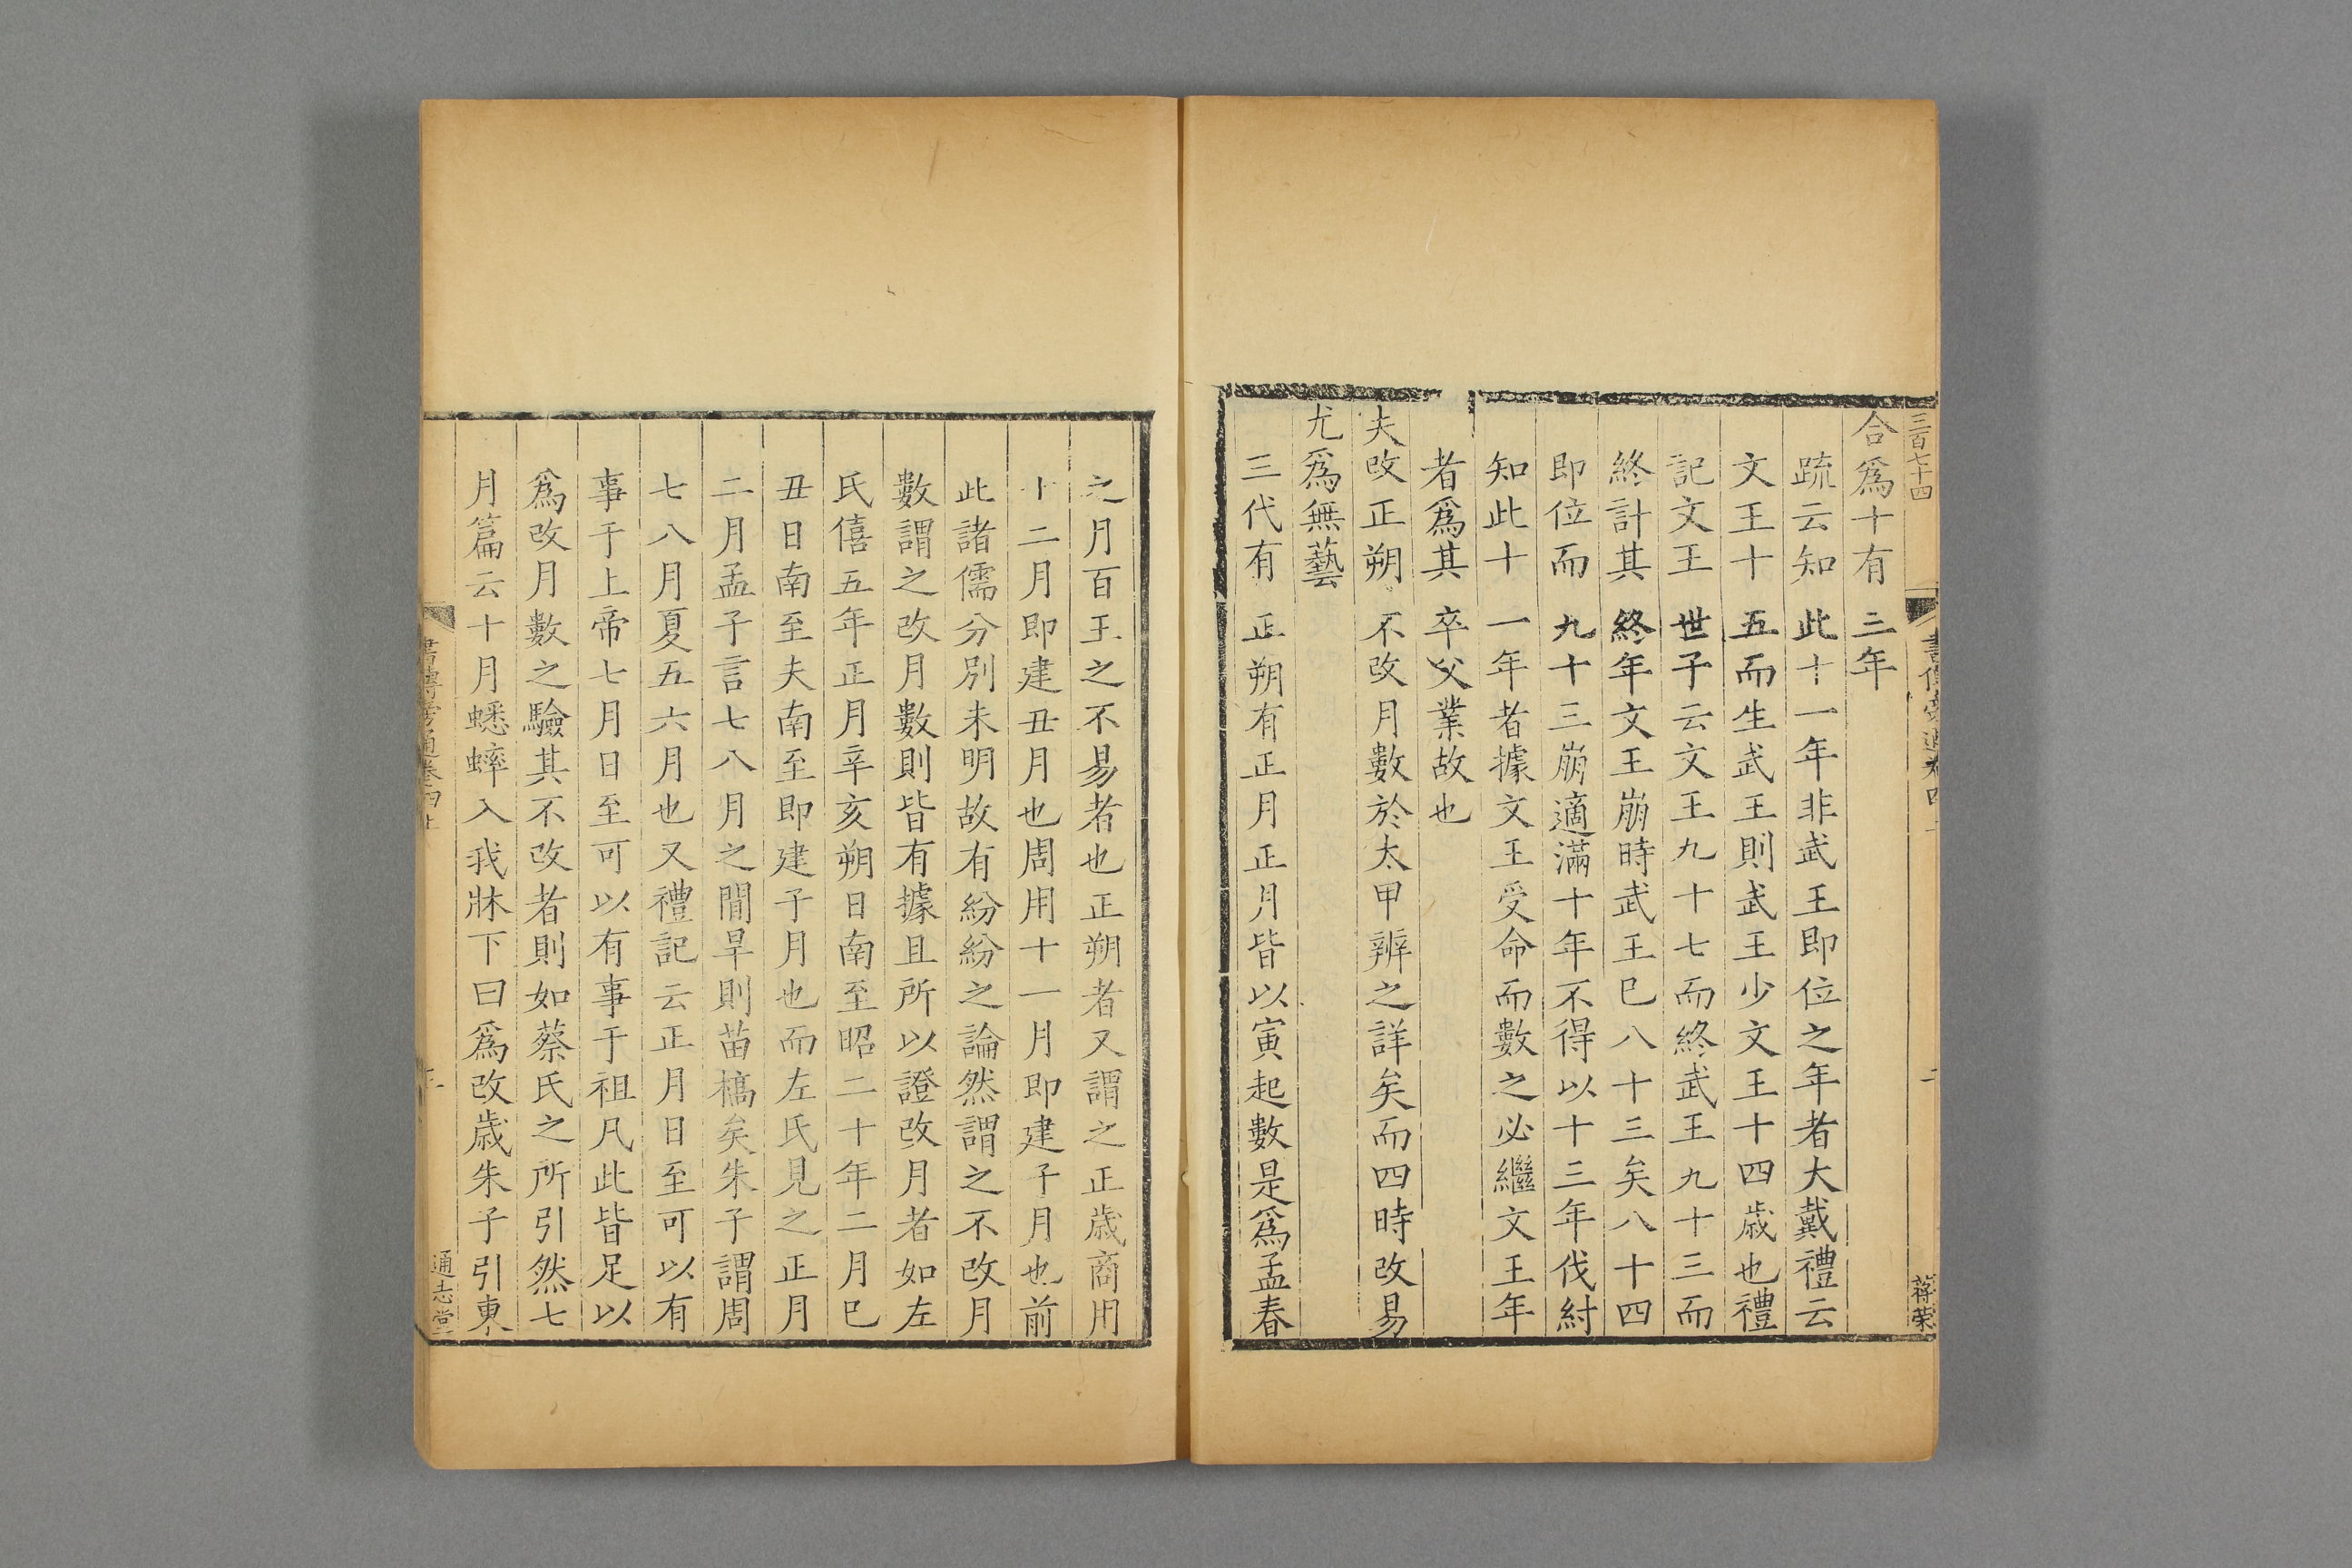 三百七十四
蔣榮
合爲十有三年
疏云知此十一年非武王即位之年者大戴禮云
文王十五而生武王則武王少文王十四歲也禮
記文王世子云文王九十七而終武王九十三而
終計其終年文王崩時武王巳八十三矣八十四
即位而九十三崩適滿十年不得以十三年伐紂
知此十一年者據文王受命而數之必繼文王年
者爲其卒父業故也
夫改正朔不改月數於太甲辨之詳矣而四時改易
尤爲無藝
三代有正朔有正月正月皆以寅起數是爲孟春
之月百王之不易者也正朔者又謂之正歲商用
十二月即建丑月也周用十一月即建子月也前
此諸儒分別未明故有紛紛之論然謂之不改月
數謂之改月數則皆有據且所以證改月者如左
氏僖五年正月辛亥朔日南至昭二十年二月巳
丑日南至夫南至即建子月也而左氏見之正月
二月孟子言七八月之間旱則苗槁矣朱子謂周
七八月夏五六月也又禮記云正月日至可以有
事于上帝七月日至可以有事于祖凡此皆足以
爲改月數之驗其不改者則如蔡氏之所引然七
月篇云十月蟋蟀入我牀下曰爲改歲朱子引東
書傳旁通卷四上
通志堂